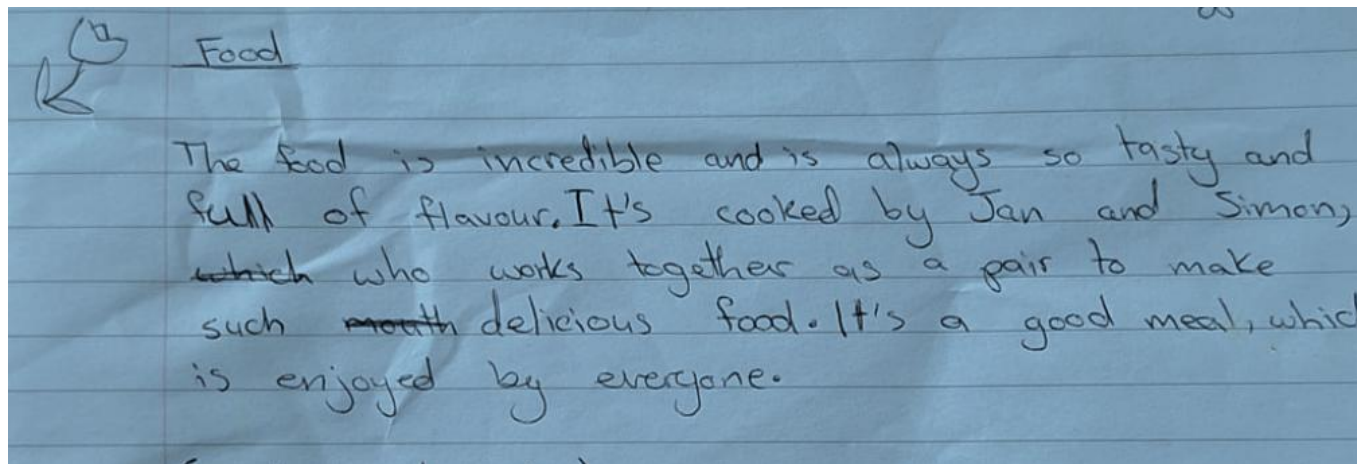 Food
The food is incredible and is always so tasty and
full of flavour. It's cooked by Jan and Simon,
which who works together as a pair to make
such mouth delicious food. It's a good meal, whic
is enjoyed by everyone.